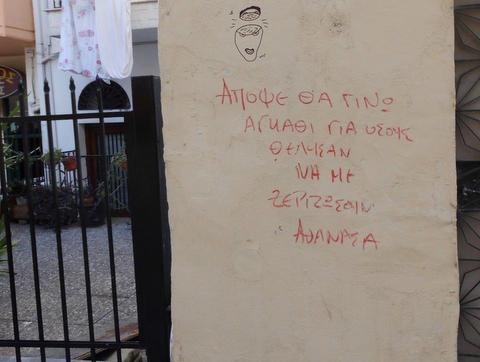 ΑΠΟΨΕ ΘΑ ΓΙΝΩ
ΑΓΚΑΘΙ ΓΙΑ ΟΣΟΥΣ
ΘΕΛΗΣΑΝ
ΝΑ ΜΕ
ΞΕΡΙΖΩΣΟΥΝ
ΑΘΑΝΑΣΑ